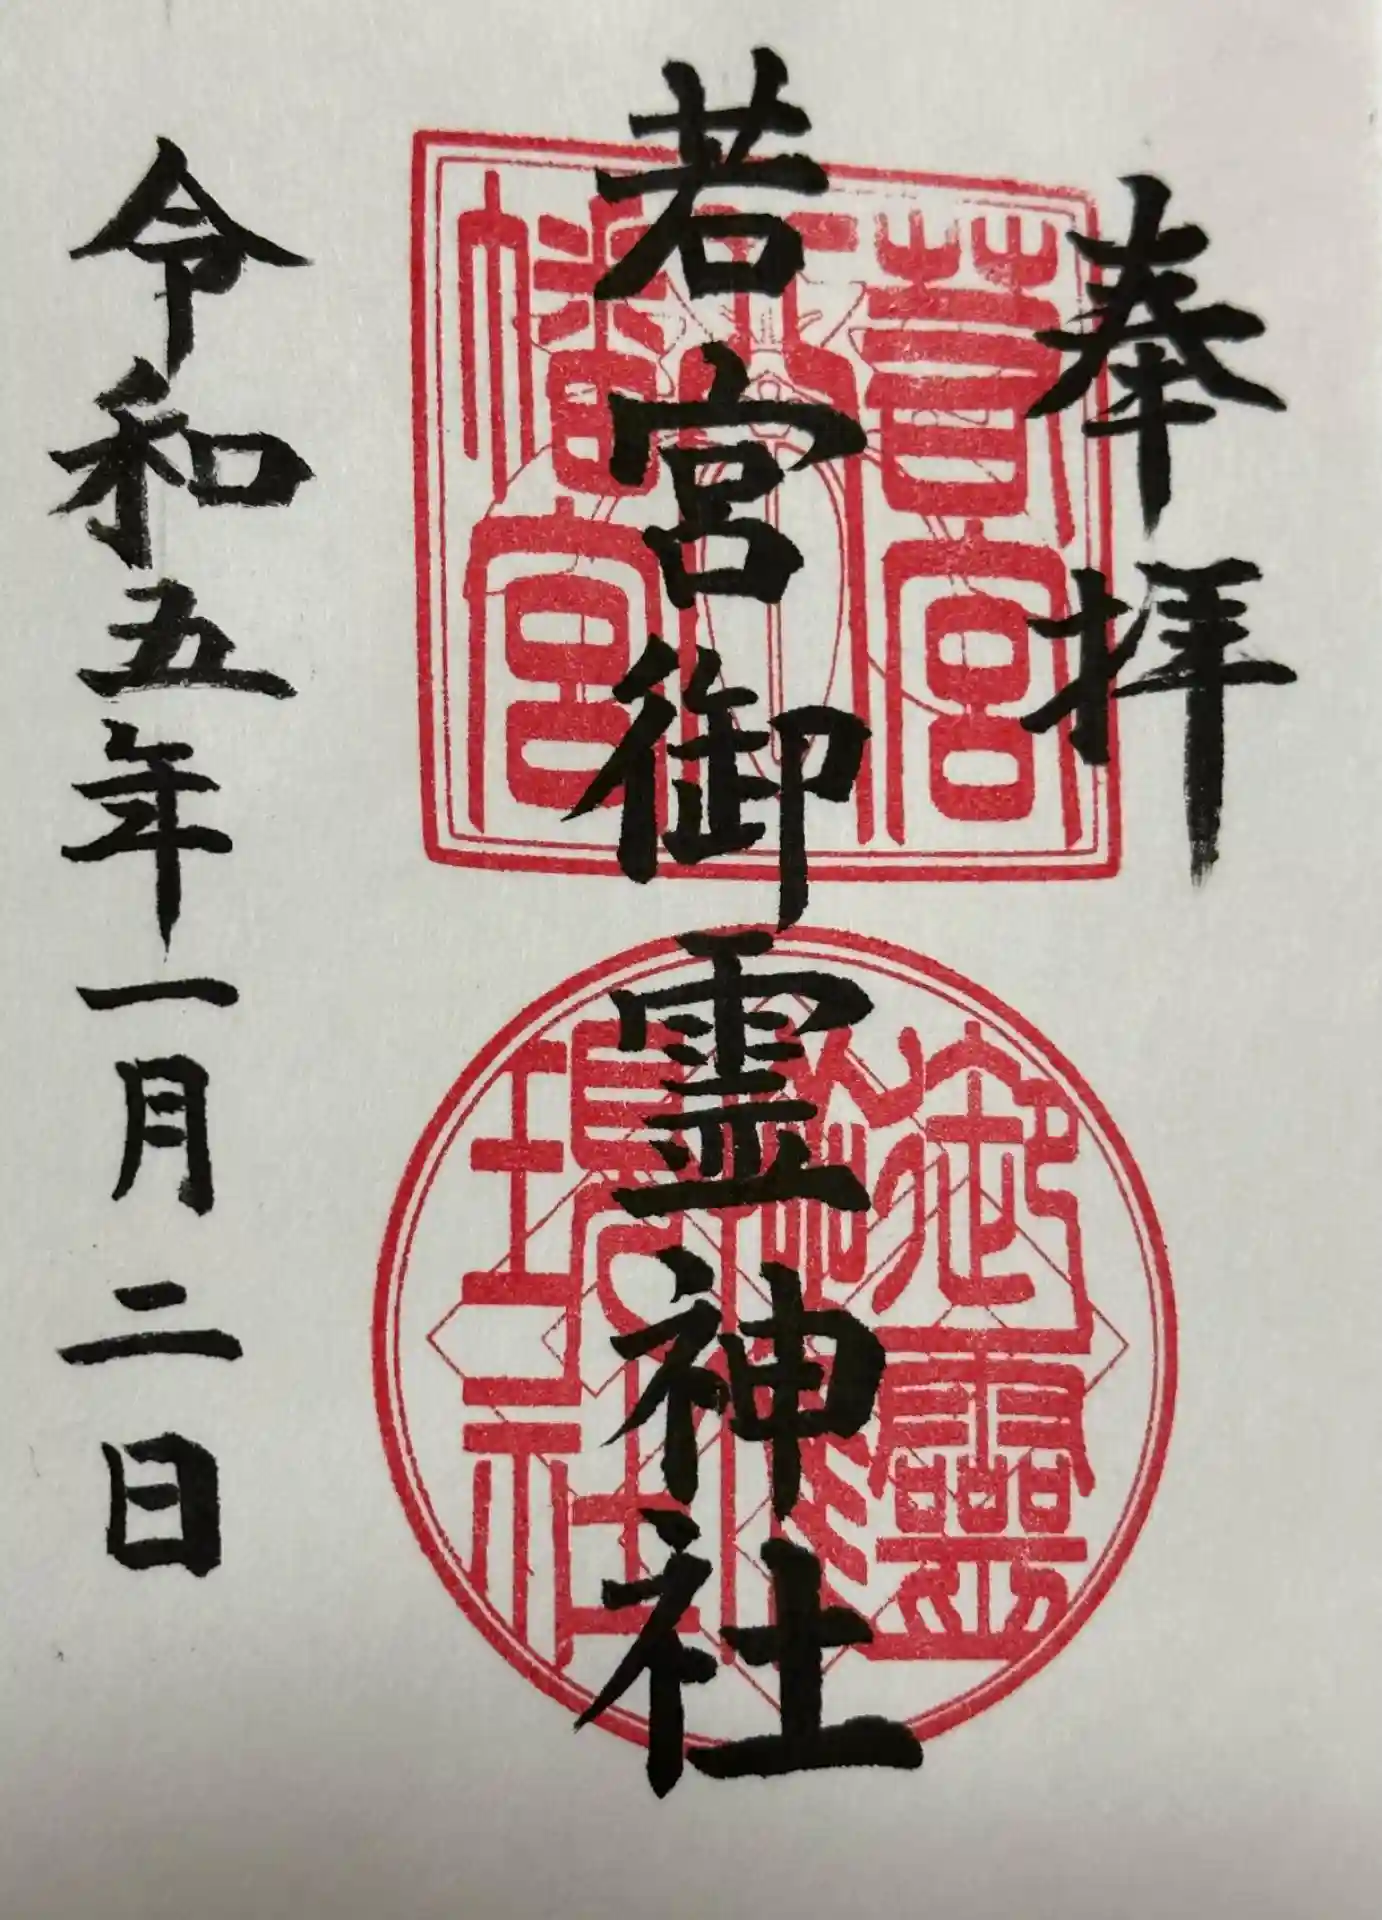 奉拝
若宮御霊神社
令和五年一月二日
若宮
八
幡宮
御霊
神社